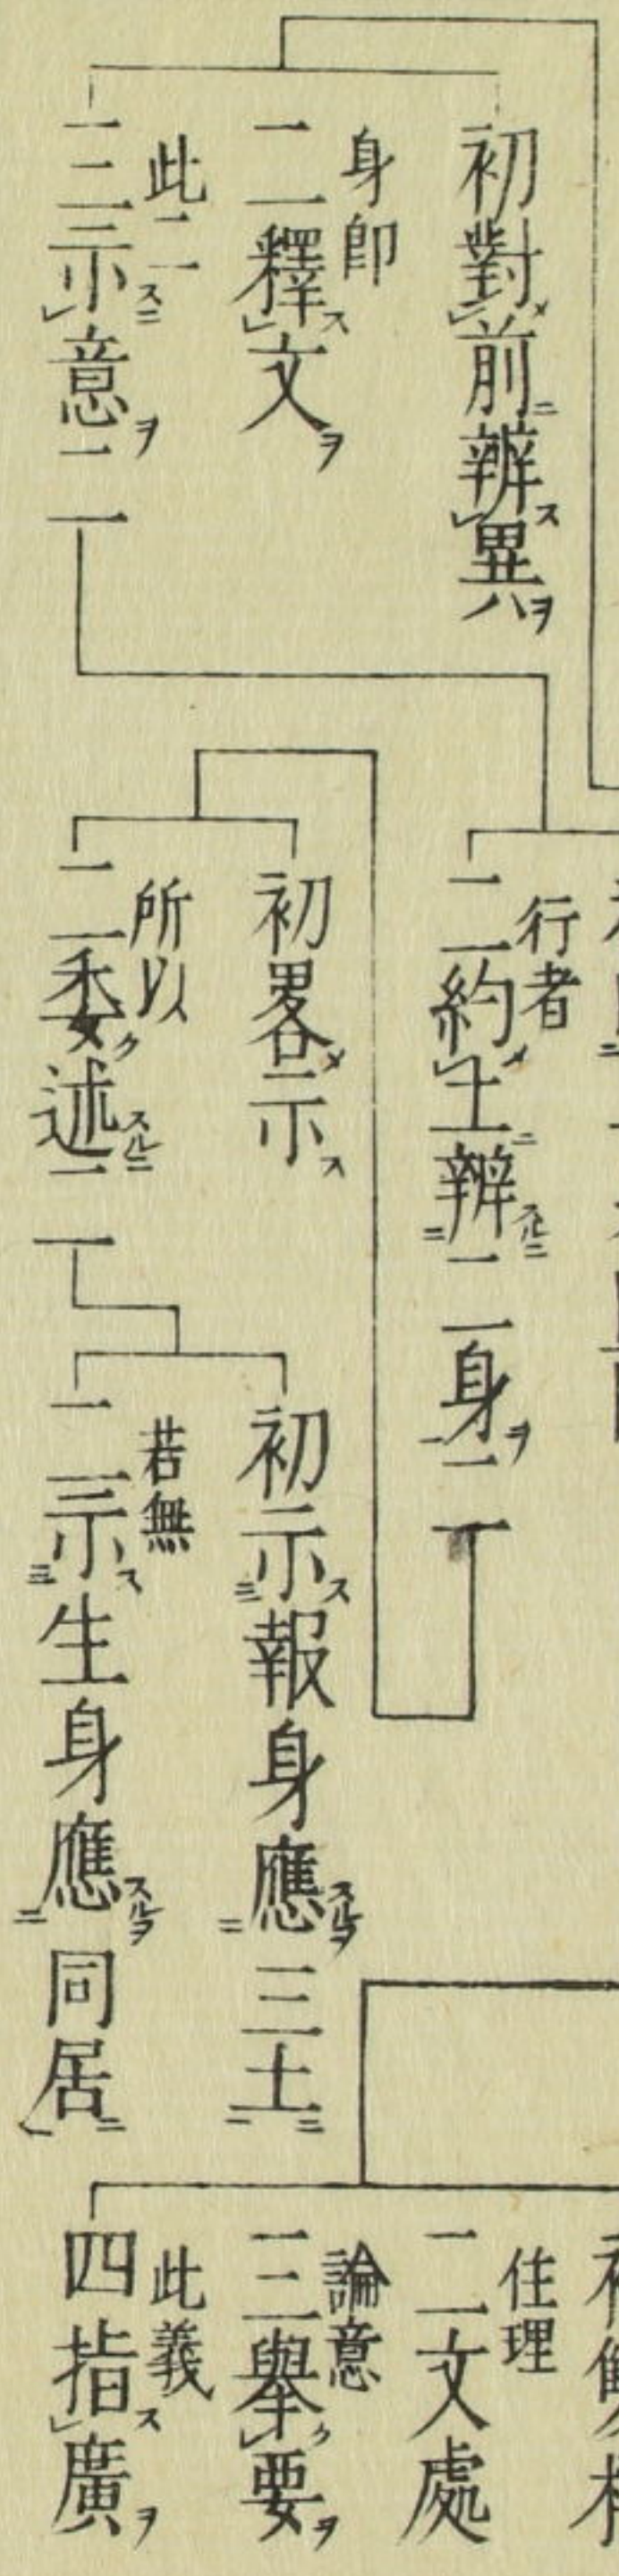 初對前辨異
身即
二釋文
此二
三示意二
行者
二約土辨二身二
初畧示
所以
二委述二
初示報身應三土
若無
二示生身應同居
住理
二文處
論意
三舉要
此義
四指廣